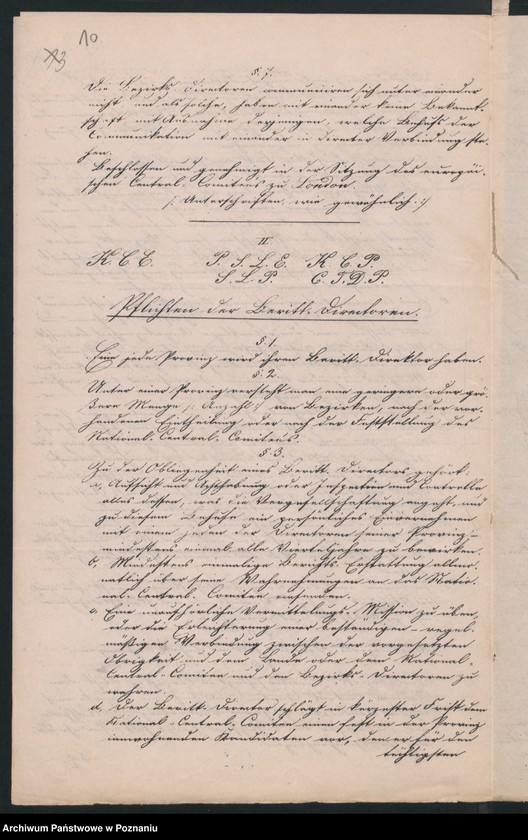 10
§. 7.
Die Bezirks-Directoren communiciren sich unter einander
nicht und als solche, haben mit einander keine Bekannt-
schaft mit Ausnahme derjenigen, welche Behufs der
Communikation mit einander in directer Verbindung ste-
hen.
Beschlossen und genehmigt in der Sitzung des europäi-
schen Central-Comitées zu London.
/: Unterschriften, wie gewöhnlich. :/
II.
K. C. E. P. S. L. E. K. C. P.
S. L. P. C. T. D. P.
Pflichten der Beritt-Directoren.
§. 1.
Eine jede Provinz wird ihren Beritt-Direktor haben.
§. 2.
Unter einer Provinz versteht man eine geringere oder grö-
ßere Menge /: Anzahl :/ von Bezirken, nach der vor-
handenen Eintheilung oder nach der Feststellung des
National-Central-Comitées.
§. 3.
Zu der Obliegenheit eines Beritt-Directors gehört:
a, Aufsicht und oder Inspection und Controlle
alles dessen, was die angeht, und
zu diesem Behufe ein persönliches Einvernehmen
mit einem jeden der Directoren seiner Provinz
mindestens einmal alle Vierteljahre zu bewirken.
b, Mindestens einmalige Berichts-Erstattung allmo-
natlich über seine Wahrnehmungen an das Natio-
nal-Central-Comitee einsenden.
c, Eine unaufhörliche Vermittelungs-Mission zu üben,
oder die Erleichterung einer beständigen – regel-
mäßigen Verbindung zwischen der vorgesetzten
Obrigkeit und dem Lande oder dem National-
Central-Comitee und den Bezirks-Directoren zu
wahren.
d, Der Beritt-Director schlägt in kürzester Frist dem
National-Central-Comitee einen fest in der Provinz
innewohnenden Kandidaten vor, den er für den
tüchtigsten
Archiwum Państwowe w Poznaniu